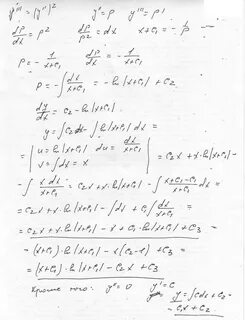 y''' = (y'')²   y'' = p   y''' = p'
dp/dx = p²   dp/p² = dx   x+C₁ = -1/p
p = -1/(x+C₁)   dp/dx = -1/(x+C₁)
p = -∫ dx/(x+C₁) = -ln|x+C₁| + C₂
dy/dx = C₂ - ln|x+C₁|
y = ∫C₂dx - ∫ln|x+C₁| dx =
= | u = ln|x+C₁|  du = dx/(x+C₁) ; v = ∫dx = x | = C₂x + x·ln|x+C₁| -
- ∫ x dx/(x+C₁) = C₂x + x·ln|x+C₁| - ∫ (x+C₁-C₁)/(x+C₁) dx =
= C₂x + x·ln|x+C₁| - ∫dx + C₁∫ dx/(x+C₁) =
= C₂x + x·ln|x+C₁| - x + C₁·ln|x+C₁| + C₃ =
= (x+C₁)·ln|x+C₁| - x(C₂-1) + C₃ =
= (x+C₁)·ln|x+C₁| - C₂x + C₃
Кроме того: y'' = 0   y' = C
y = ∫C₁dx + C₂ =
= C₁x + C₂